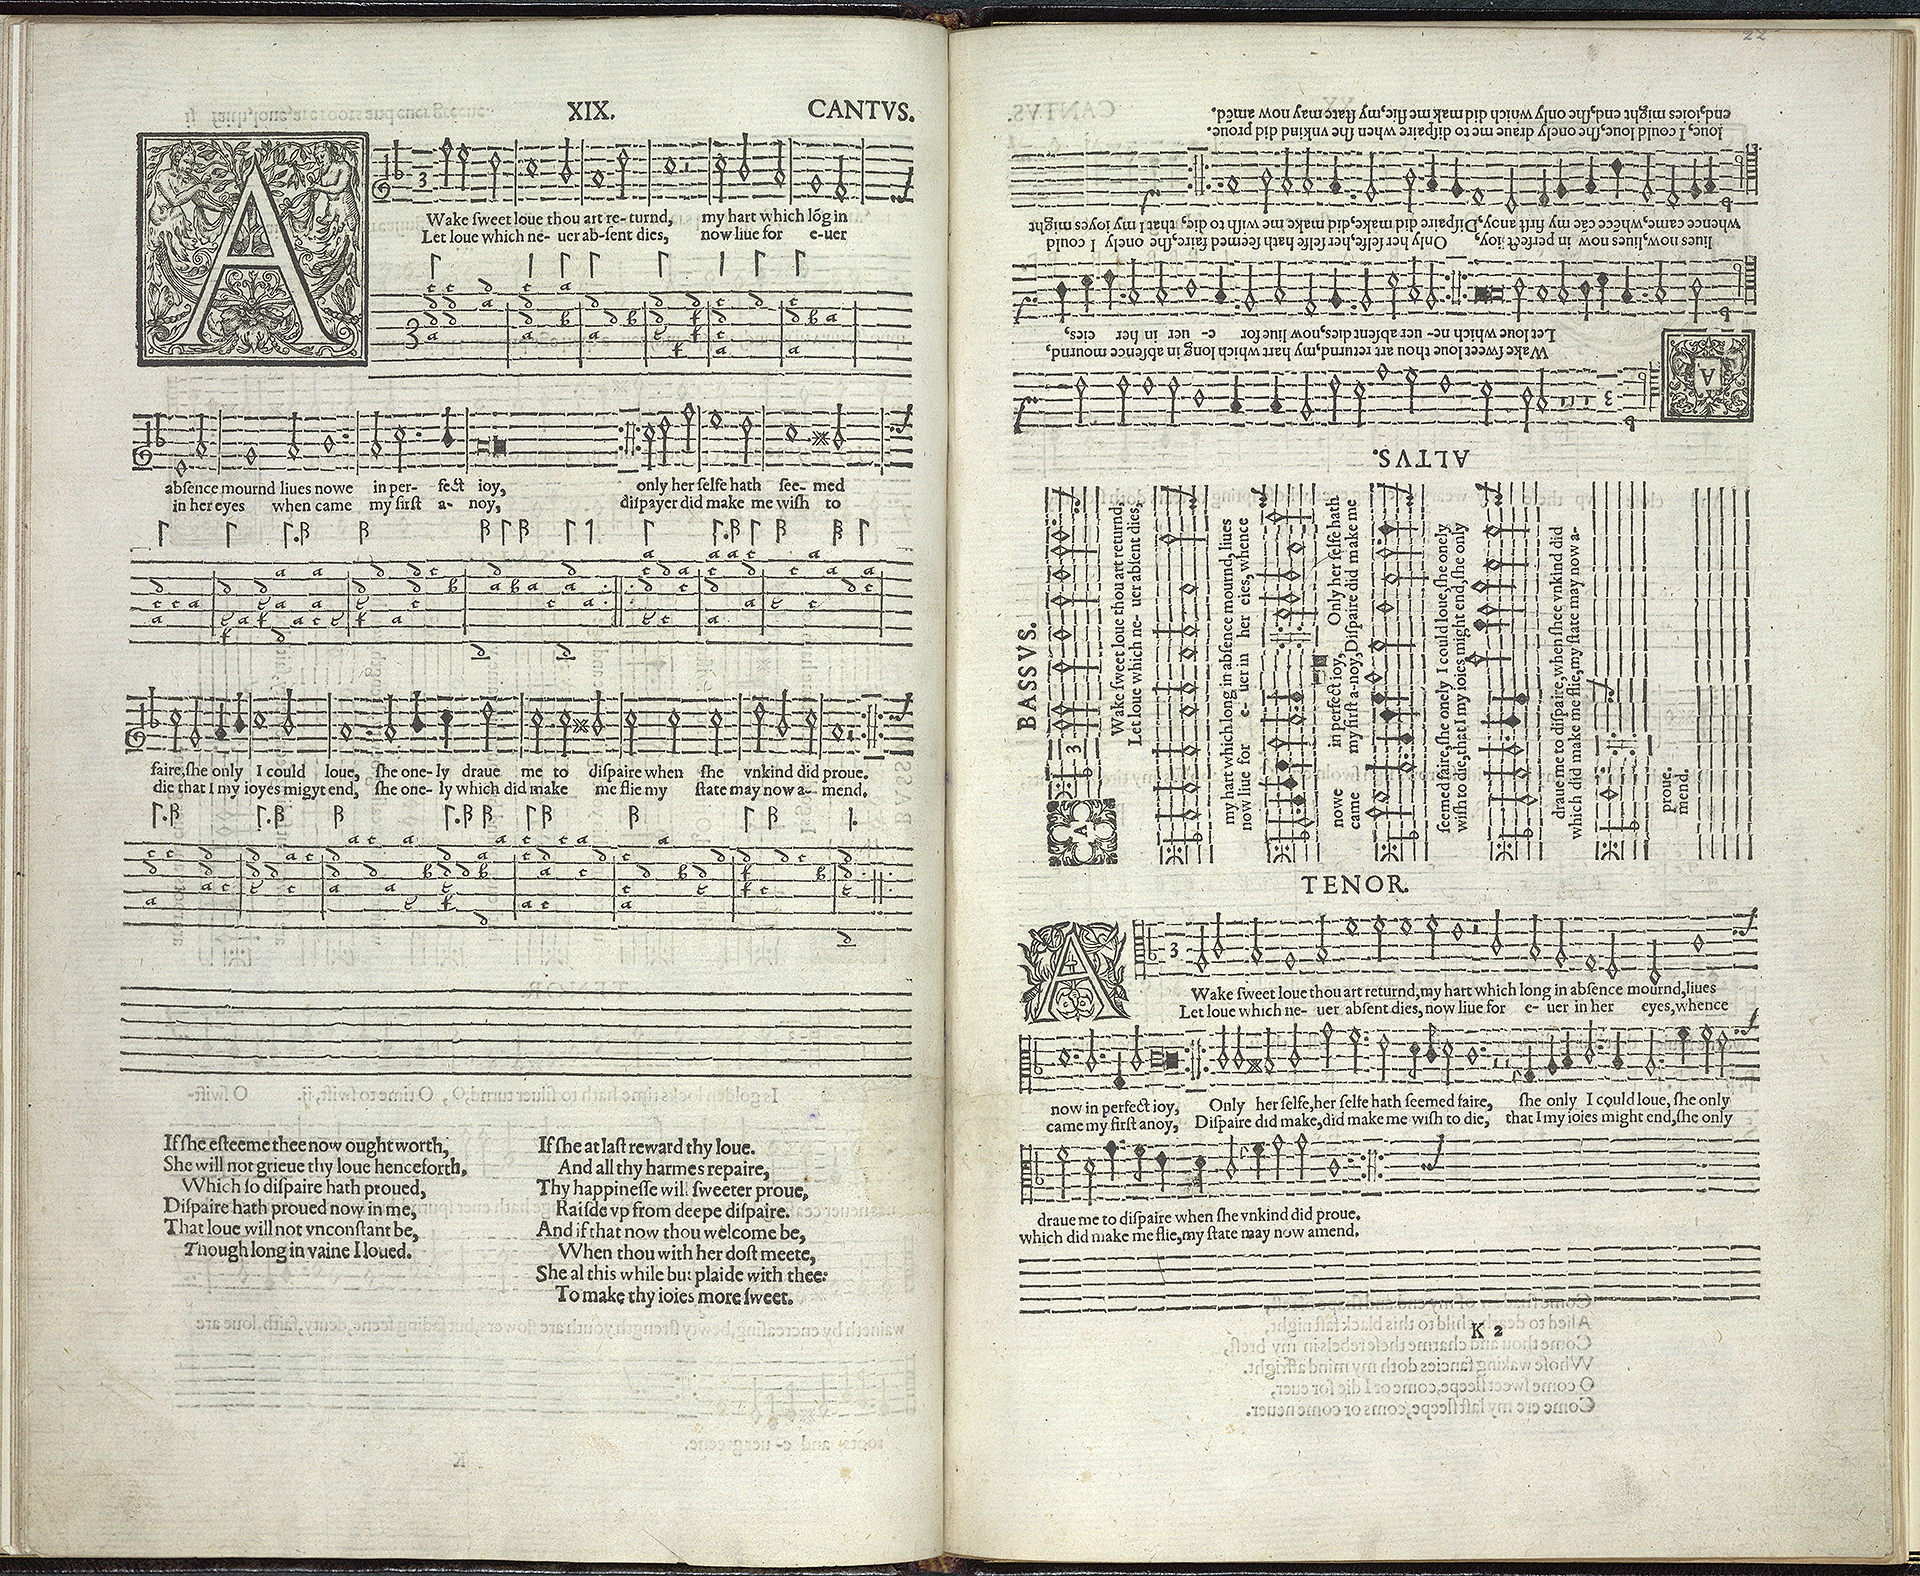 XIX. CANTVS.
AWake ſweet loue thou art re- turnd, my hart which lõg in
Let loue which ne- uer ab-ſent dies, now liue for e-uer
abſence mournd liues nowe in per- fect ioy, only her ſelfe hath ſee- med
in her eyes when came my firſt a- noy, diſpayer did make me wiſh to
faire, ſhe only I could loue, ſhe one- ly draue me to diſpaire when ſhe vnkind did proue.
die that I my ioyes migyt end, ſhe one- ly which did make me flie my ſtate may now a- mend.
If ſhe eſteeme thee now ought worth,
She will not grieue thy loue henceforth,
Which ſo diſpaire hath proued,
Diſpaire hath proued now in me,
That loue will not vnconſtant be,
Though long in vaine I loued.
If ſhe at laſt reward thy loue.
And all thy harmes repaire,
Thy happineſſe will ſweeter proue,
Raiſde vp from deepe diſpaire.
And if that now thou welcome be,
When thou with her doſt meete,
She al this while but plaide with thee:
To make thy ioies more ſweet.
22
ALTVS.
AWake ſweet loue thou art returnd, my hart which long in abſence mournd,
Let loue which ne- uer abſent dies, now liue for e- uer in her eies,
liues now, liues now in perfect ioy, Only her ſelfe, her ſelfe hath ſeemed faire, ſhe onely I could
whence came, whẽce cãe my firſt anoy, Diſpaire did make, did make me wiſh to die, that I my ioyes might
loue, I could loue, ſhe onely draue me to diſpaire when ſhe vnkind did proue.
end, ioies might end, ſhe only which did mak me flie, my ſtate may now amẽd.
BASSVS.
AWake ſweet loue thou art returnd,
Let loue which ne- uer abſent dies,
my hart which long in abſence mournd, liues
now liue for e- uer in her eies, whence
nowe in perfect ioy, Only her ſelfe hath
came my firſt a-noy, Diſpaire did make me
ſeemed faire, ſhe onely I could loue, ſhe onely
wiſh to die, that I my ioies might end, ſhe only
draue me to diſpaire, when ſhee vnkind did
which did make me flie, my ſtate may now a-
proue.
mend.
TENOR.
AWake ſweet loue thou art returnd, my hart which long in abſence mournd, liues
Let loue which ne- uer abſent dies, now liue for e- uer in her eyes, whence
now in perfect ioy, Only her ſelfe, her ſelfe hath ſeemed faire, ſhe only I could loue, ſhe only
came my firſt anoy, Diſpaire did make, did make me wiſh to die, that I my ioies might end, ſhe only
draue me to diſpaire when ſhe vnkind did proue.
which did make me flie, my ſtate may now amend.
K 2